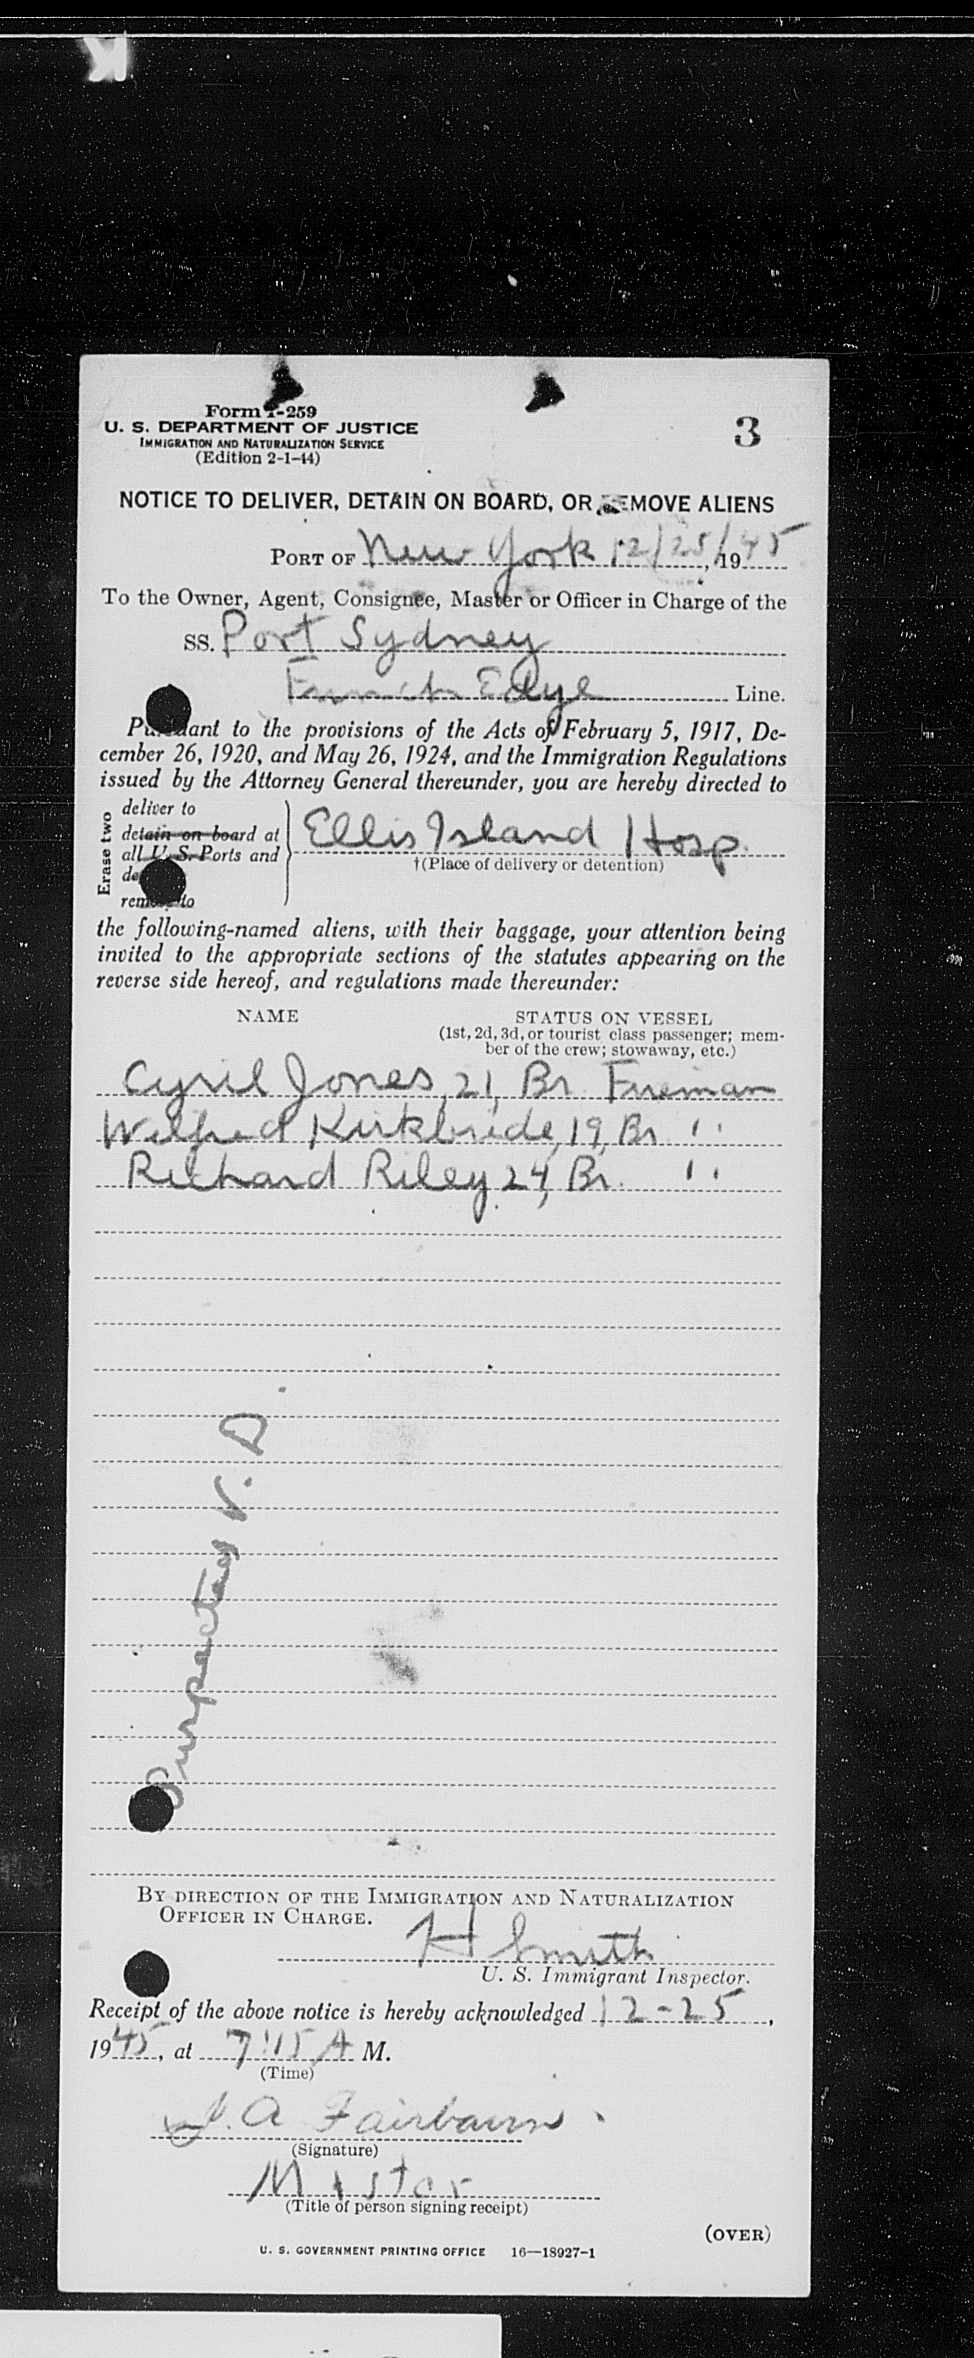 Form I-259
U. S. DEPARTMENT OF JUSTICE
IMMIGRATION AND NATURALIZATION SERVICE
(Edition 2-1-44)
3
NOTICE TO DELIVER, DETAIN ON BOARD, OR REMOVE ALIENS
PORT OF New York 12/25/, 1945
To the Owner, Agent, Consignee, Master or Officer in Charge of the
SS. Port Sydney
Funch Edye Line.
Pursuant to the provisions of the Acts of February 5, 1917, De-
cember 26, 1920, and May 26, 1924, and the Immigration Regulations
issued by the Attorney General thereunder, you are hereby directed to
Erase two
deliver to
detain on board at
all U. S. Ports and
remove to
Ellis Island Hosp.
†(Place of delivery or detention)
the following-named aliens, with their baggage, your attention being
invited to the appropriate sections of the statutes appearing on the
reverse side hereof, and regulations made thereunder:
NAME STATUS ON VESSEL
(1st, 2d, 3d, or tourist class passenger; mem-
ber of the crew; stowaway, etc.)
Cyril Jones, 21, Br Fireman
Wilfred Kirkbride, 19, Br ''
Richard Riley 24, Br. ''
Suspected V. D.
BY DIRECTION OF THE IMMIGRATION AND NATURALIZATION
OFFICER IN CHARGE.
H Smith
U. S. Immigrant Inspector.
Receipt of the above notice is hereby acknowledged 12-25,
1945, at 7:15 A M.
(Time)
J. A Fairbairn
(Signature)
Master
(Title of person signing receipt)
(OVER)
U. S. GOVERNMENT PRINTING OFFICE 16—18927-1